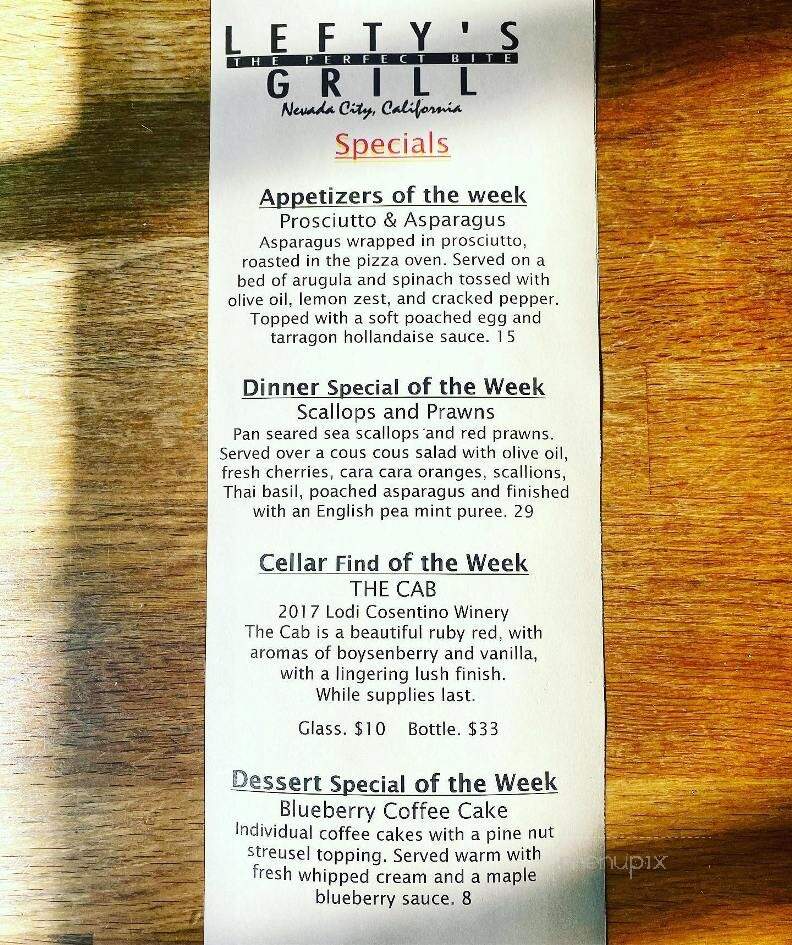 LEFTY'S
THE PERFECT BITE
GRILL
Nevada City, California
Specials
Appetizers of the week
Prosciutto & Asparagus
Asparagus wrapped in prosciutto,
roasted in the pizza oven. Served on a
bed of arugula and spinach tossed with
olive oil, lemon zest, and cracked pepper.
Topped with a soft poached egg and
tarragon hollandaise sauce. 15
Dinner Special of the Week
Scallops and Prawns
Pan seared sea scallops and red prawns.
Served over a cous cous salad with olive oil,
fresh cherries, cara cara oranges, scallions,
Thai basil, poached asparagus and finished
with an English pea mint puree. 29
Cellar Find of the Week
THE CAB
2017 Lodi Cosentino Winery
The Cab is a beautiful ruby red, with
aromas of boysenberry and vanilla,
with a lingering lush finish.
While supplies last.
Glass. $10 Bottle. $33
Dessert Special of the Week
Blueberry Coffee Cake
Individual coffee cakes with a pine nut
streusel topping. Served warm with
fresh whipped cream and a maple
blueberry sauce. 8